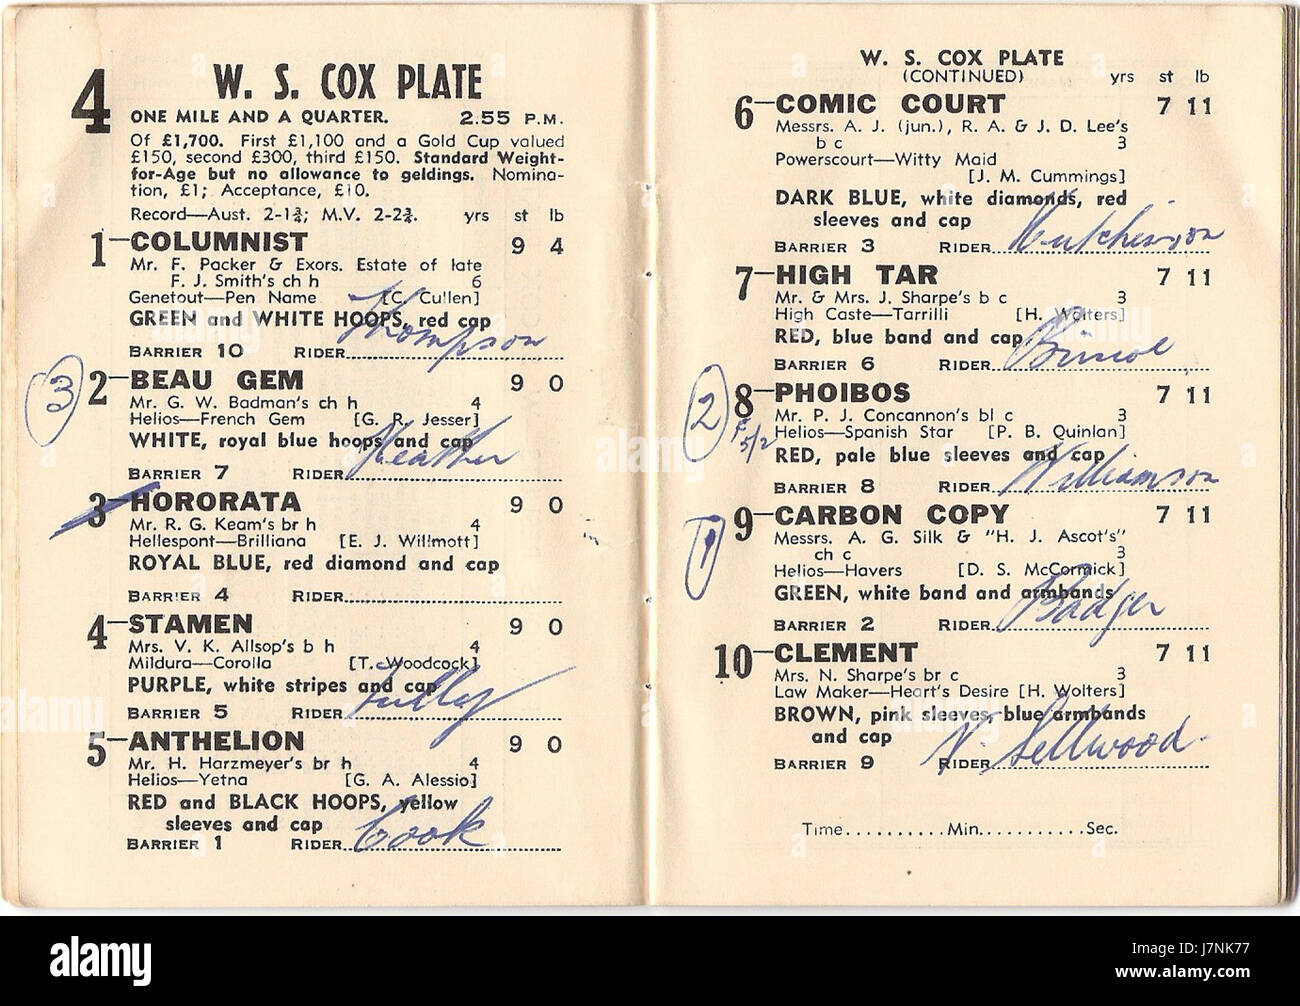 4
W. S. COX PLATE
ONE MILE AND A QUARTER. 2.55 P.M.
Of £1,700. First £1,100 and a Gold Cup valued
£150, second £300, third £150. Standard Weight-
for-Age but no allowance to geldings. Nomina-
tion, £1; Acceptance, £10.
Record—Aust. 2-1¾; M.V. 2-2¾. yrs st lb
1—COLUMNIST 9 4
Mr. F. Packer & Exors. Estate of late
F. J. Smith's ch h 6
Genetout—Pen Name [C. Cullen]
GREEN and WHITE HOOPS, red cap
BARRIER 10 RIDER Thompson
3
2—BEAU GEM 9 0
Mr. G. W. Badman's ch h 4
Helios—French Gem [G. R. Jesser]
WHITE, royal blue hoops and cap
BARRIER 7 RIDER Heather
3—HORORATA 9 0
Mr. R. G. Keam's br h 4
Hellespont—Brilliana [E. J. Willmott]
ROYAL BLUE, red diamond and cap
BARRIER 4 RIDER
4—STAMEN 9 0
Mrs. V. K. Allsop's b h 4
Mildura—Corolla [T. Woodcock]
PURPLE, white stripes and cap
BARRIER 5 RIDER
5—ANTHELION 9 0
Mr. H. Harzmeyer's br h 4
Helios—Yetna [G. A. Alessio]
RED and BLACK HOOPS, yellow
sleeves and cap
BARRIER 1 RIDER Cook
W. S. COX PLATE
(CONTINUED) yrs st lb
6—COMIC COURT 7 11
Messrs. A. J. (jun.), R. A. & J. D. Lee's
b c 3
Powerscourt—Witty Maid
[J. M. Cummings]
DARK BLUE, white diamonds, red
sleeves and cap
BARRIER 3 RIDER Hutchinson
7—HIGH TAR 7 11
Mr. & Mrs. J. Sharpe's b c 3
High Caste—Tarrilli [H. Wolters]
RED, blue band and cap
BARRIER 6 RIDER
2
8—PHOIBOS 7 11
Mr. P. J. Concannon's bl c 3
F 5/2
Helios—Spanish Star [P. B. Quinlan]
RED, pale blue sleeves and cap
BARRIER 8 RIDER Williamson
1
9—CARBON COPY 7 11
Messrs. A. G. Silk & "H. J. Ascot's"
ch c 3
Helios—Havers [D. S. McCormick]
GREEN, white band and armbands
BARRIER 2 RIDER Badger
10—CLEMENT 7 11
Mrs. N. Sharpe's br c 3
Law Maker—Heart's Desire [H. Wolters]
BROWN, pink sleeves, blue armbands
and cap
BARRIER 9 RIDER N. Sellwood.
Time..........Min...........Sec.
alamy
Image ID: J7NK77
www.alamy.com